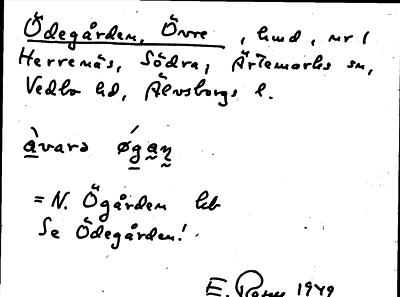 Ödegården, Övre, hmd, nr 1
Herrenäs, Södra, Ärtemarks sn,
Vedbo hd, Älvsborgs l.
àvarə ǿgan̥
= N. Ögården
Se Ödegården!
E. 1949